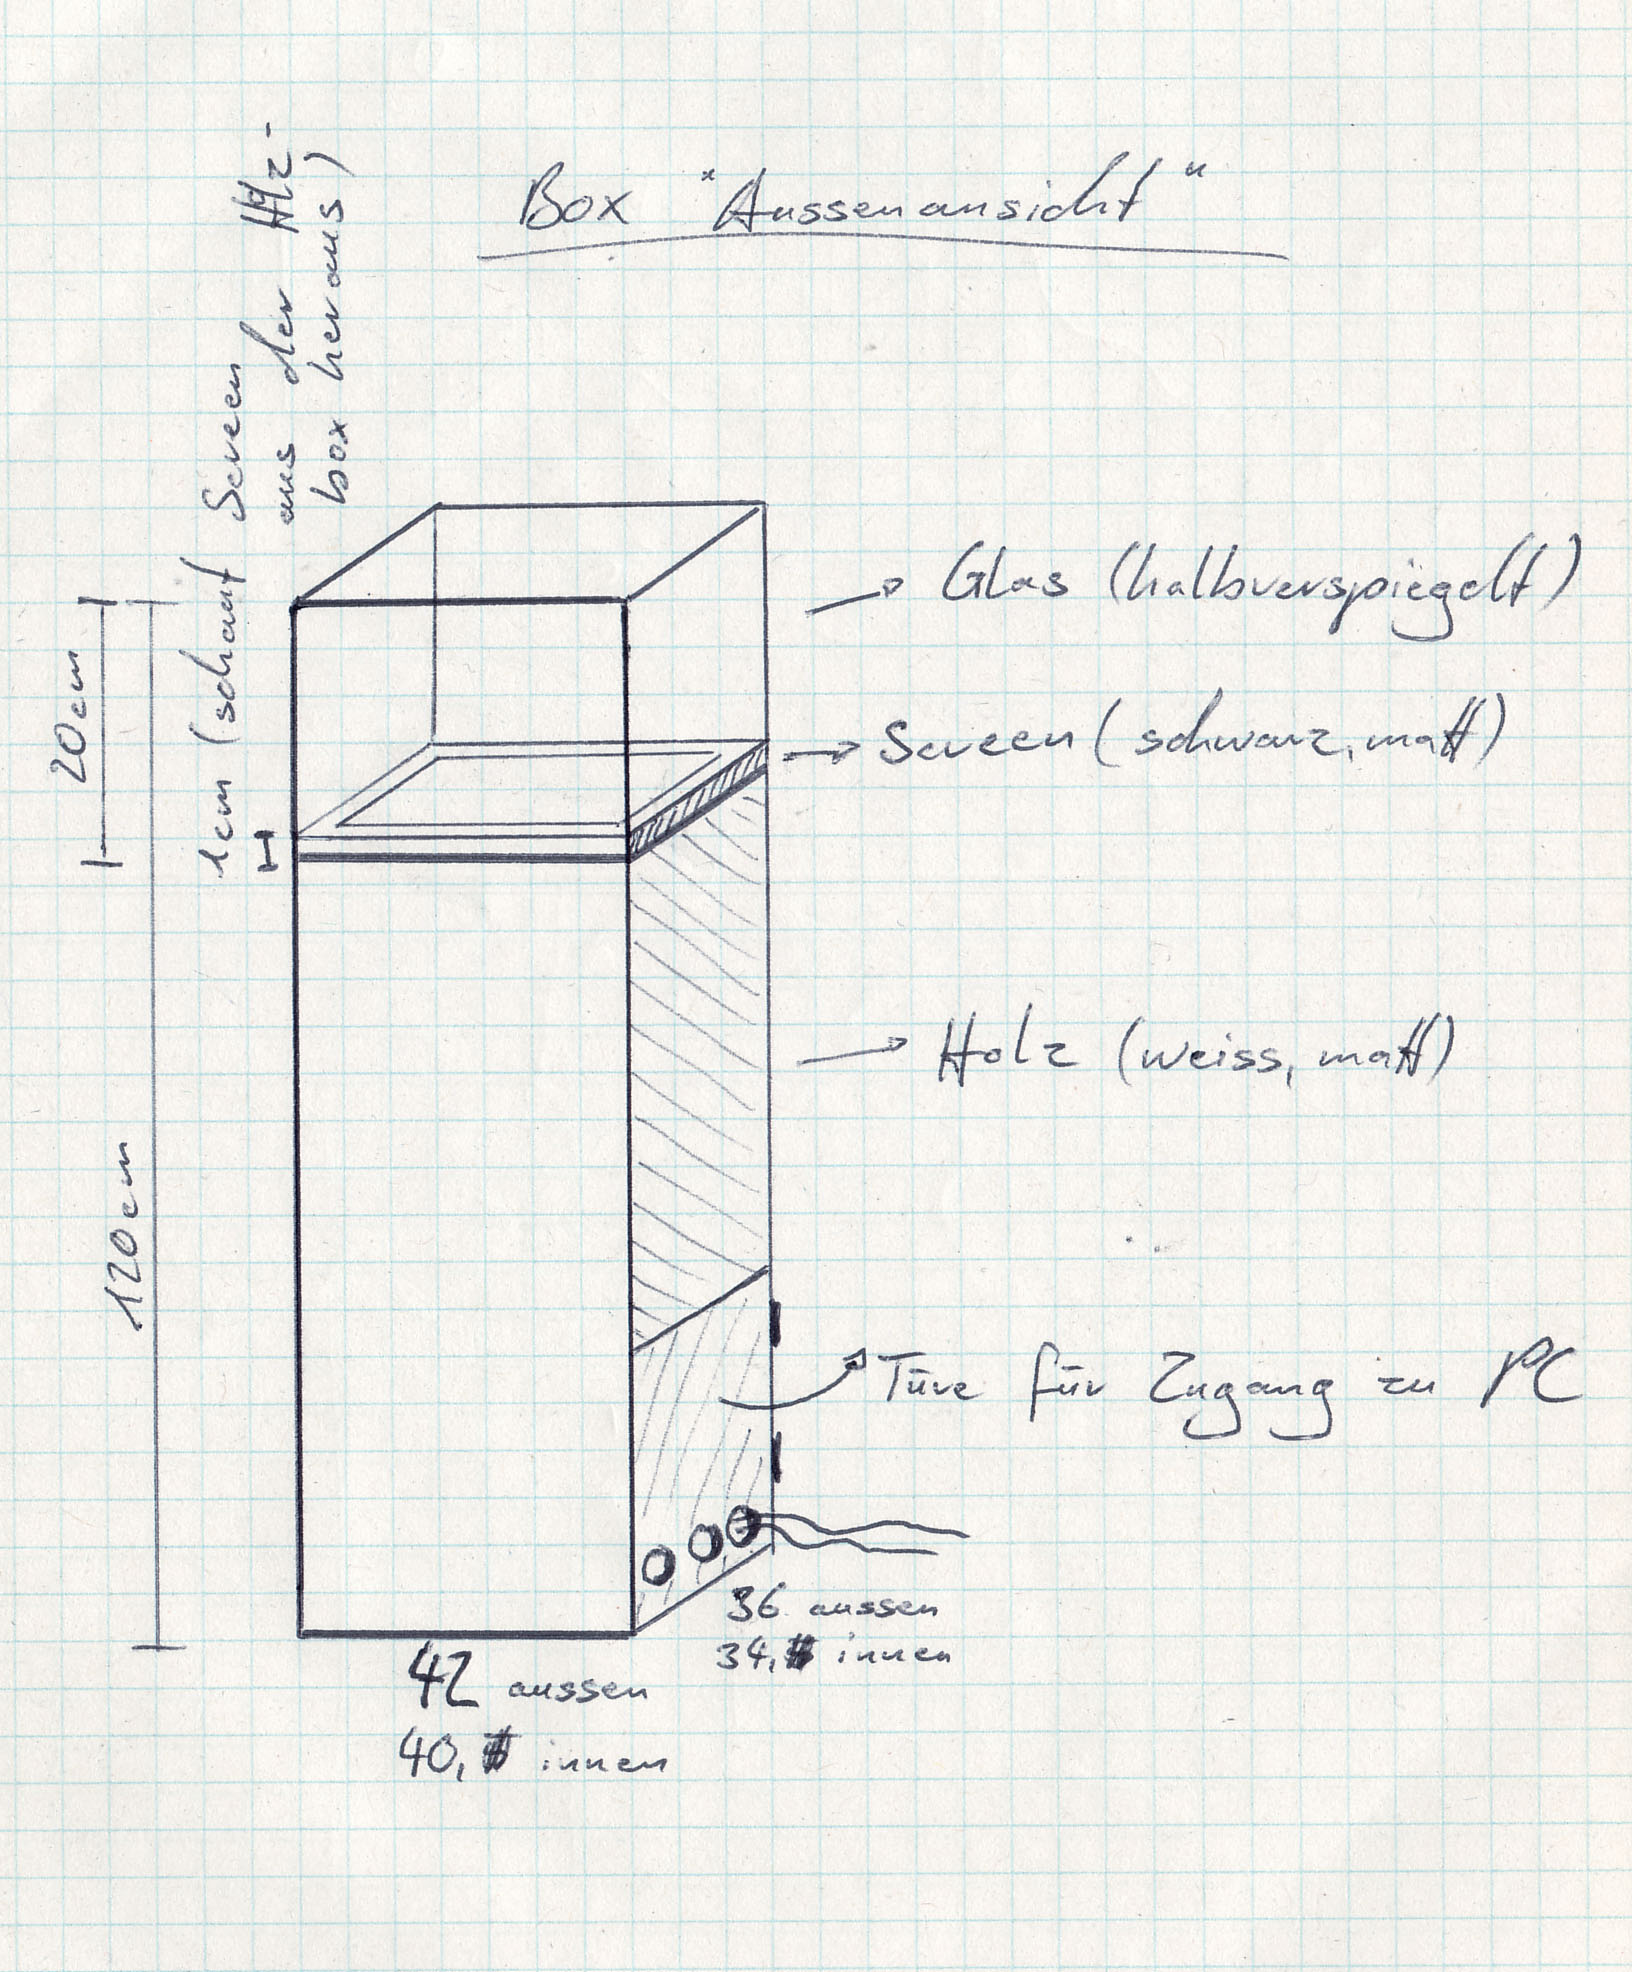 Box "Aussenansicht"
1cm (schaut Screen
aus der Hlz-
box heraus)
20cm
120cm
Glas (halbverspiegelt)
Screen (schwarz, matt)
Holz (weiss, matt)
Türe für Zugang zu PC
36 aussen
34, innen
42 aussen
40, innen